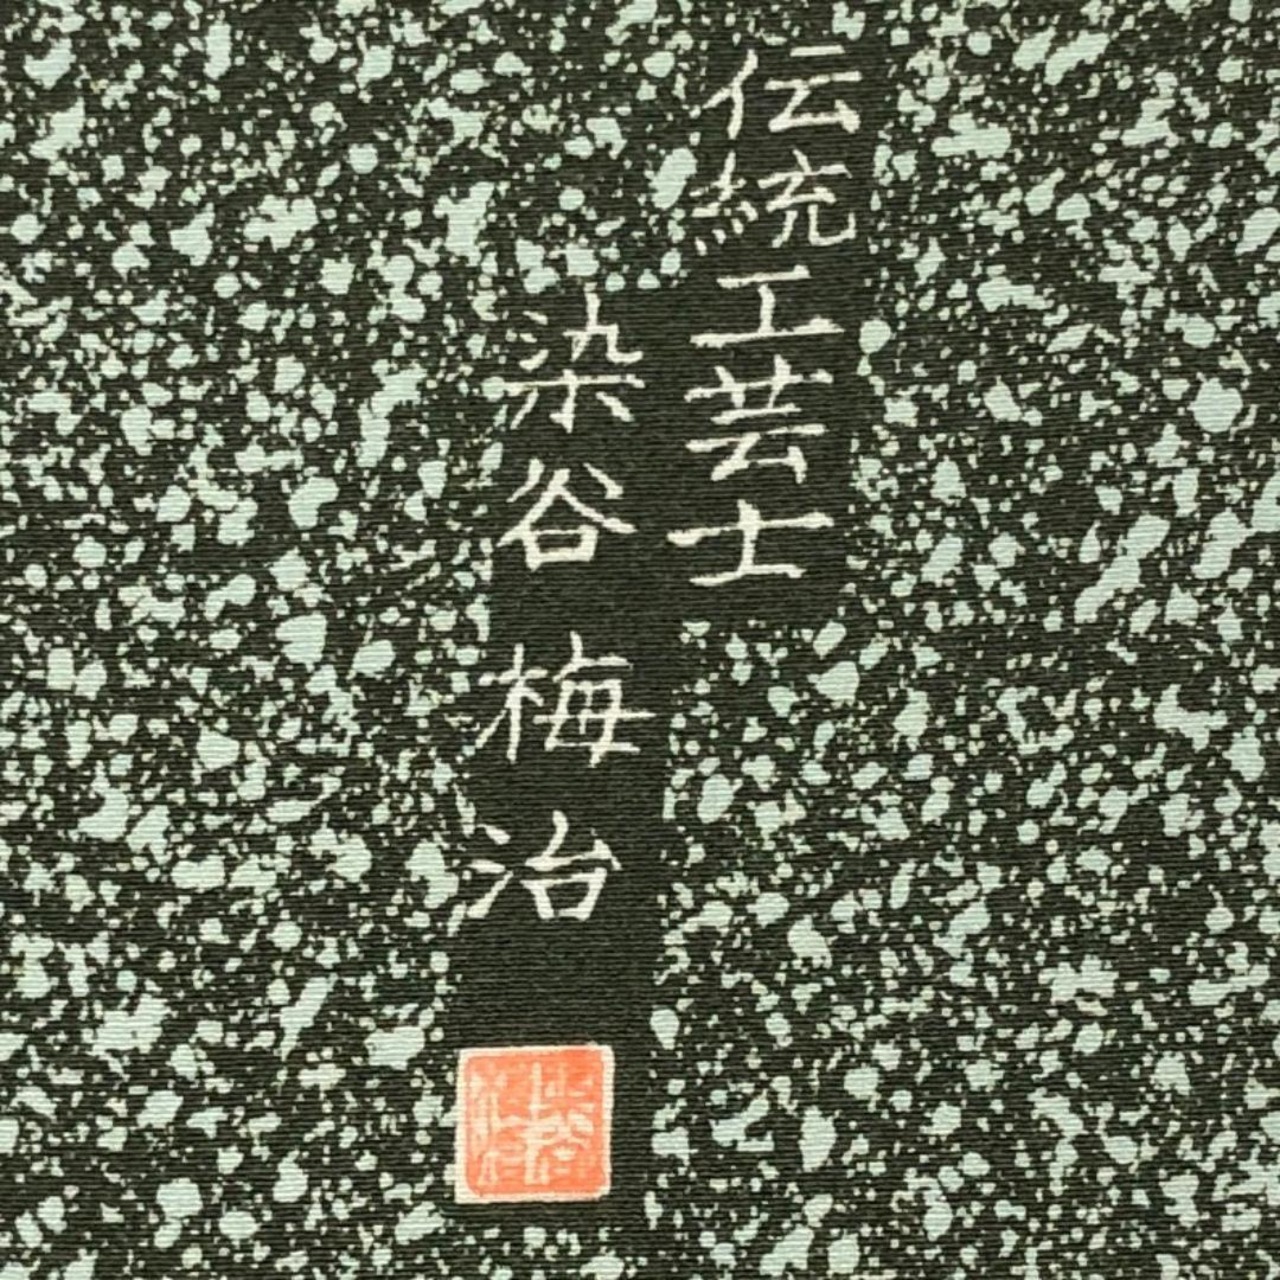 伝統工芸士
染谷梅治